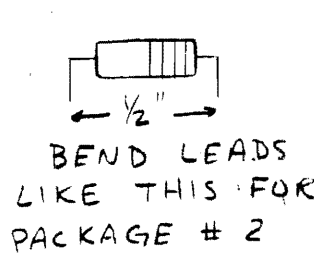 1/2"
BEND LEADS
LIKE THIS FOR
PACKAGE # 2